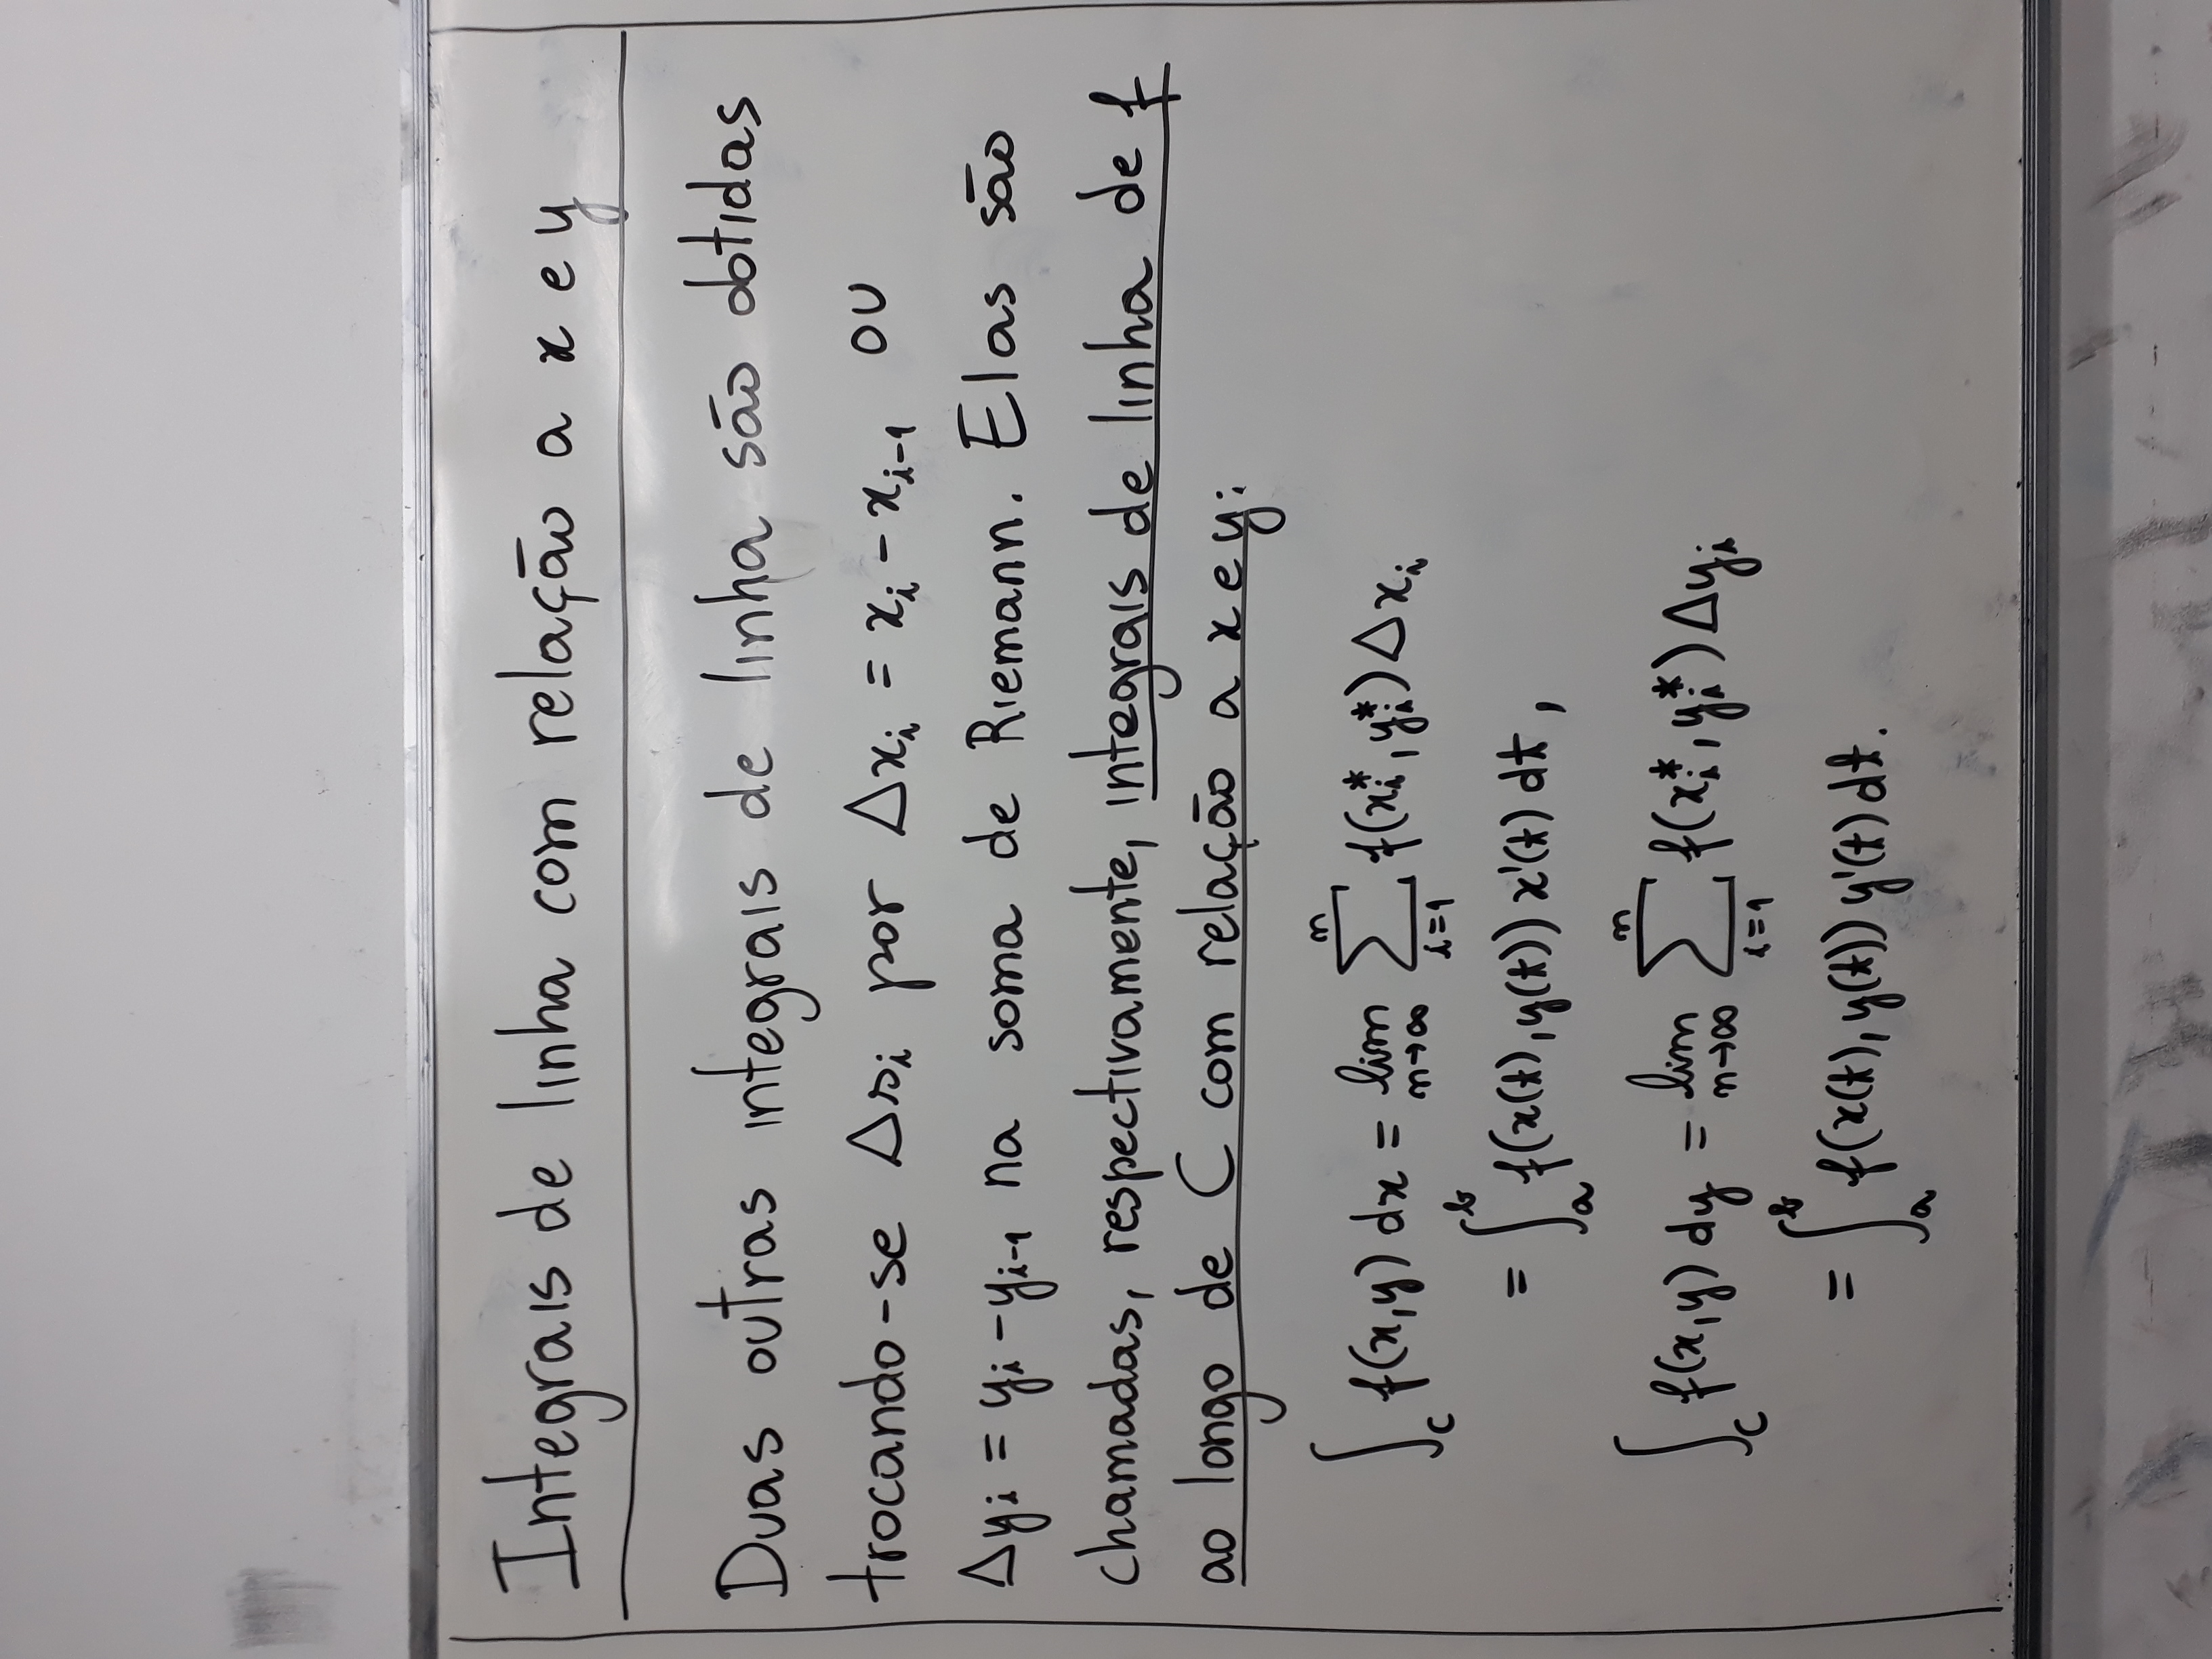 Integrais de linha com relação a x e y
Duas outras integrais de linha são obtidas
trocando-se Δsᵢ por Δxᵢ = xᵢ - xᵢ₋₁ ou
Δyᵢ = yᵢ - yᵢ₋₁ na soma de Riemann. Elas são
chamadas, respectivamente, integrais de linha de f
ao longo de C com relação a x e y:
∫_C f(x,y) dx = lim_{n→∞} ∑_{i=1}^{n} f(xᵢ*, yᵢ*) Δxᵢ
= ∫_a^b f(x(t), y(t)) x'(t) dt,
∫_C f(x,y) dy = lim_{n→∞} ∑_{i=1}^{n} f(xᵢ*, yᵢ*) Δyᵢ
= ∫_a^b f(x(t), y(t)) y'(t) dt.